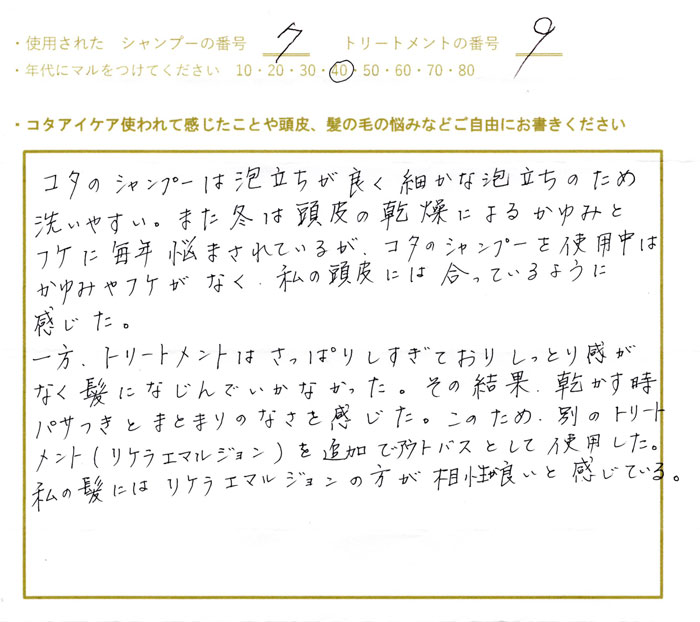 ・使用された シャンプーの番号 7 トリートメントの番号 9
・年代にマルをつけてください 10・20・30・40・50・60・70・80
・コタアイケア使われて感じたことや頭皮、髪の毛の悩みなどご自由にお書きください
コタのシャンプーは泡立ちが良く細かな泡立ちのため
洗いやすい。また冬は頭皮の乾燥によるかゆみと
フケに毎年悩まされているが、コタのシャンプーを使用中は
かゆみやフケがなく、私の頭皮には合っているように
感じた。
一方、トリートメントはさっぱりしすぎておりしっとり感が
なく髪になじんでいかなかった。その結果、乾かす時
パサつきとまとまりのなさを感じた。このため、別のトリート
メント(リケラエマルジョン)を追加でアウトバスとして使用した。
私の髪にはリケラエマルジョンの方が相性が良いと感じている。